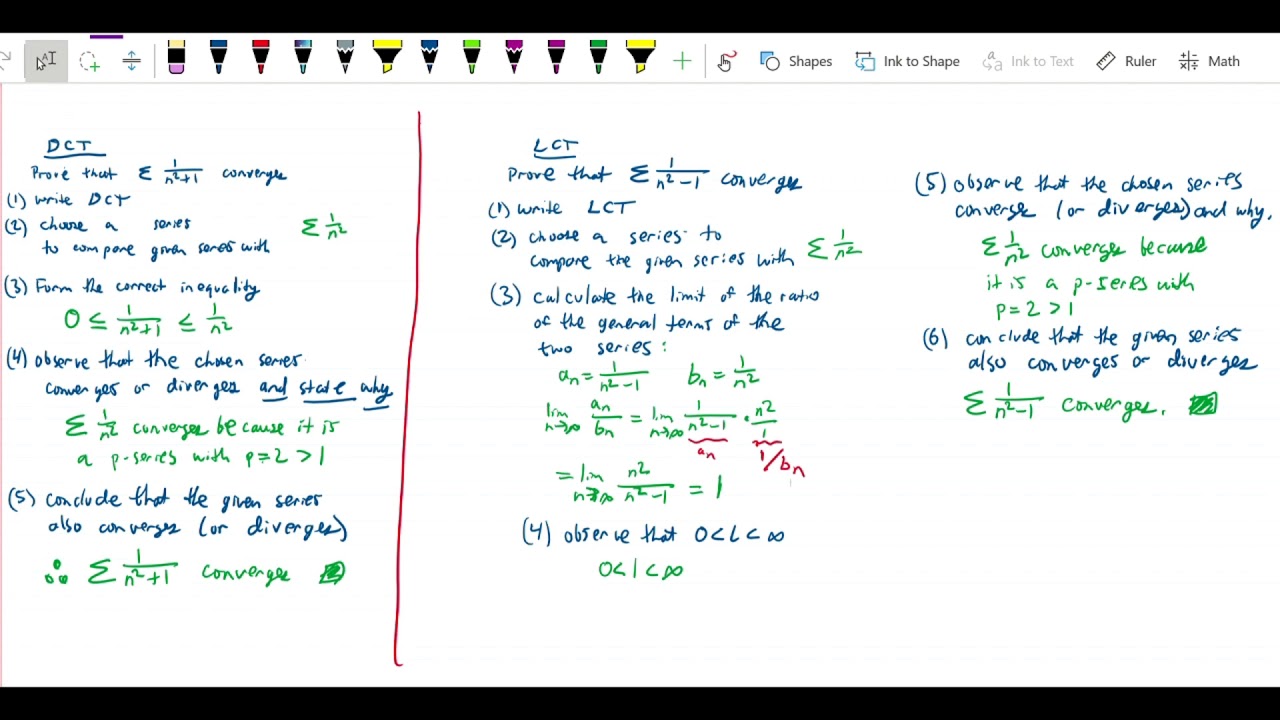 Shapes
Ink to Shape
Ink to Text
Ruler
Math
DCT
Prove that Σ 1/(n²+1) converges
(1) write DCT
(2) choose a series
to compare given series with
Σ 1/n²
(3) Form the correct inequality
0 ≤ 1/(n²+1) ≤ 1/n²
(4) observe that the chosen series
converges or diverges and state why
Σ 1/n² converges because it is
a p-series with p=2 > 1
(5) conclude that the given series
also converges (or diverges)
∴ Σ 1/(n²+1) converges
LCT
Prove that Σ 1/(n²-1) converges
(1) write LCT
(2) choose a series to
compare the given series with
Σ 1/n²
(3) calculate the limit of the ratio
of the general terms of the
two series:
aₙ = 1/(n²-1) bₙ = 1/n²
lim n→∞ aₙ/bₙ = lim n→∞ 1/(n²-1) · n²/1
aₙ 1/bₙ
= lim n→∞ n²/(n²-1) = 1
(4) observe that 0<L<∞
0<1<∞
(5) observe that the chosen series
converge (or diverges) and why.
Σ 1/n² converges because
it is a p-series with
p=2 >1
(6) conclude that the given series
also converges or diverges
Σ 1/(n²-1) converges.